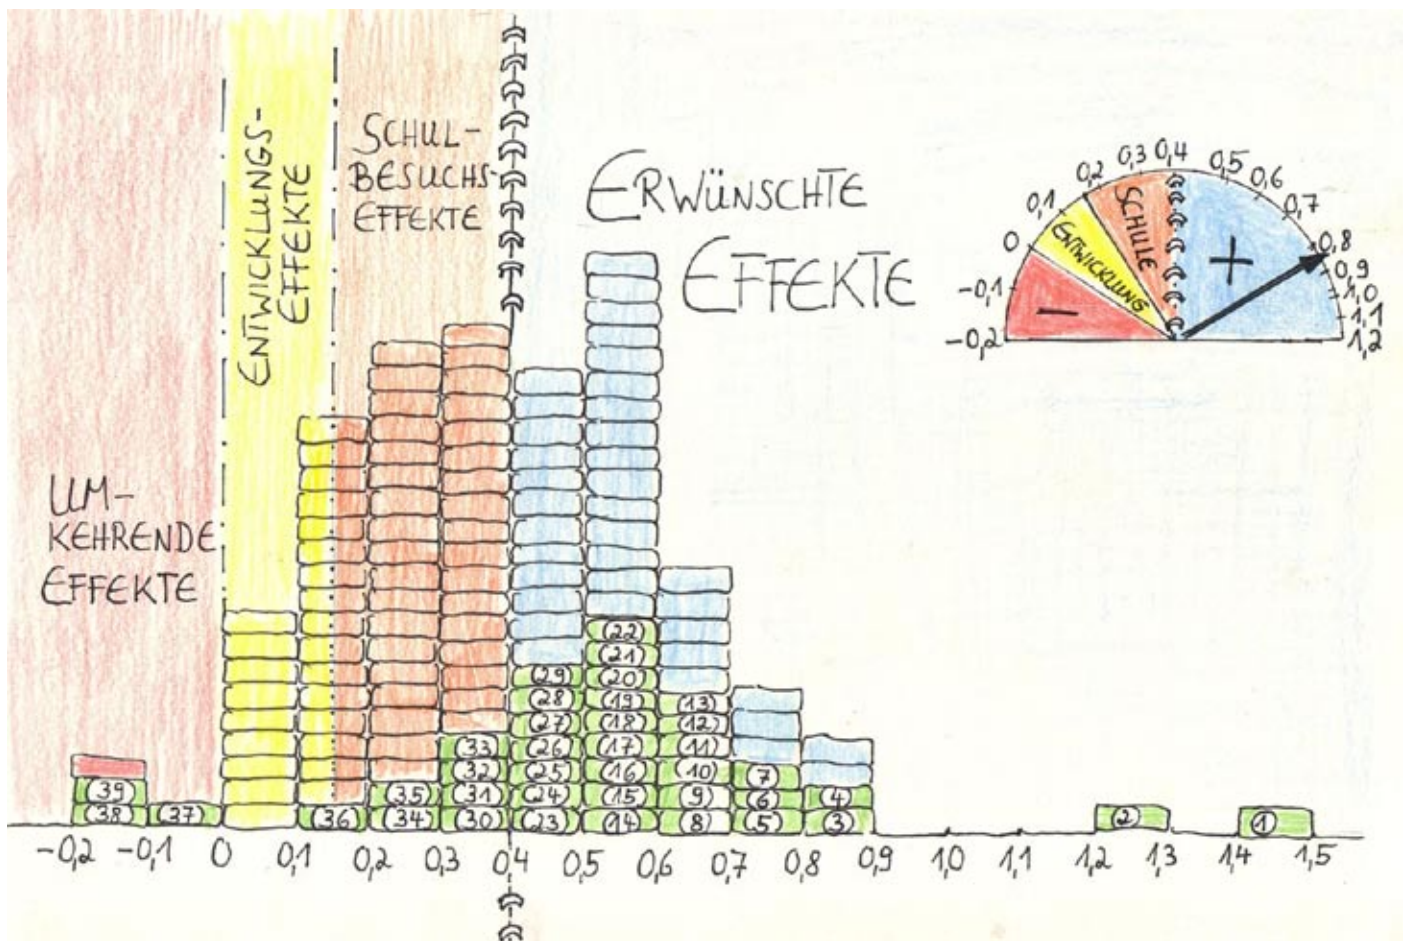 ENTWICKLUNGS-
EFFEKTE
SCHUL-
BESUCHS-
EFFEKTE
ERWÜNSCHTE
EFFEKTE
UM-
KEHRENDE
EFFEKTE
-0,2
-0,1
0
0,1
0,2
0,3
0,4
0,5
0,6
0,7
0,8
0,9
1,0
1,1
1,2
-
ENTWICKLUNG
SCHULE
+
39
38
37
36
35
34
33
32
31
30
29
28
27
26
25
24
23
22
21
20
19
18
17
16
15
14
13
12
11
10
9
8
7
6
5
4
3
2
1
-0,2 -0,1 0 0,1 0,2 0,3 0,4 0,5 0,6 0,7 0,8 0,9 1,0 1,1 1,2 1,3 1,4 1,5